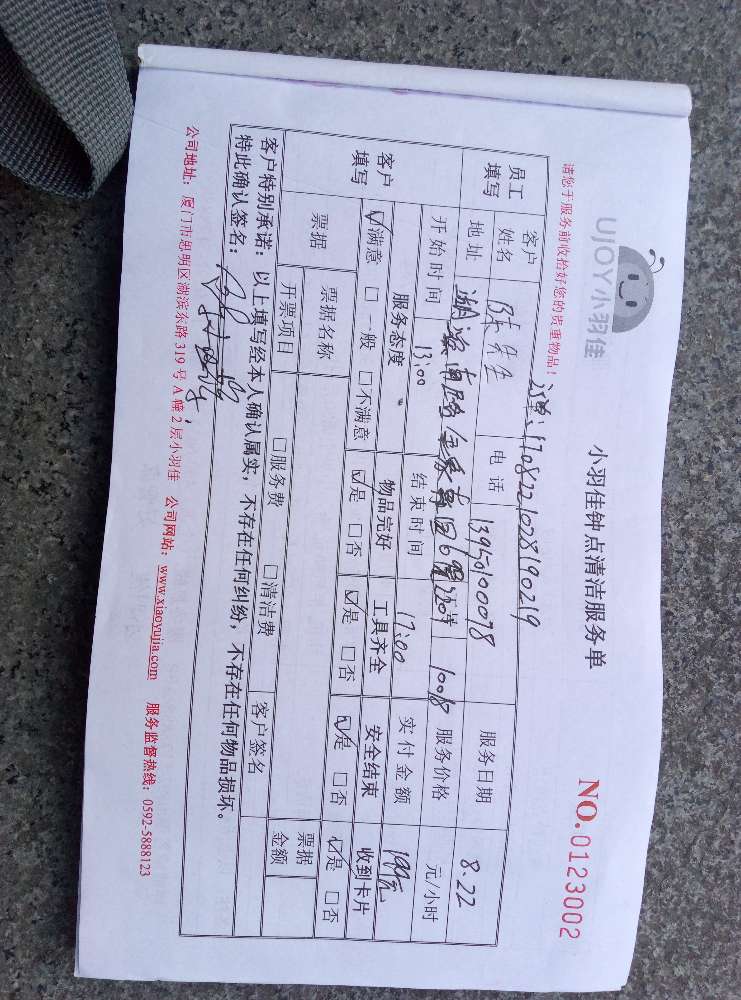 UJOY小羽佳
小羽佳钟点清洁服务单
NO.0123002
请您于服务前收拾好您的贵重物品!
单:1708221028190219
员工填写 客户姓名 先生 电话 13950100078 服务日期 8.22
地址 湖滨南路 服务价格 元/小时
开始时间 13:00 结束时间 17:00 实付金额
客户填写 服务态度 物品完好 工具齐全 安全结束 收到卡片
☑满意 □一般 □不满意 ☑是 □否 ☑是 □否 ☑是 □否 ☑是 □否
票据 票据名称 票据金额
开票项目 □服务费 □清洁费 客户签名
客户特别承诺:以上填写经本人确认属实,不存在任何纠纷,不存在任何物品损坏。
特此确认签名:
公司地址:厦门市思明区湖滨东路 319 号 A 幢 2 层小羽佳 公司网站:www.xiaoyujia.com 服务监督热线:0592-5888123